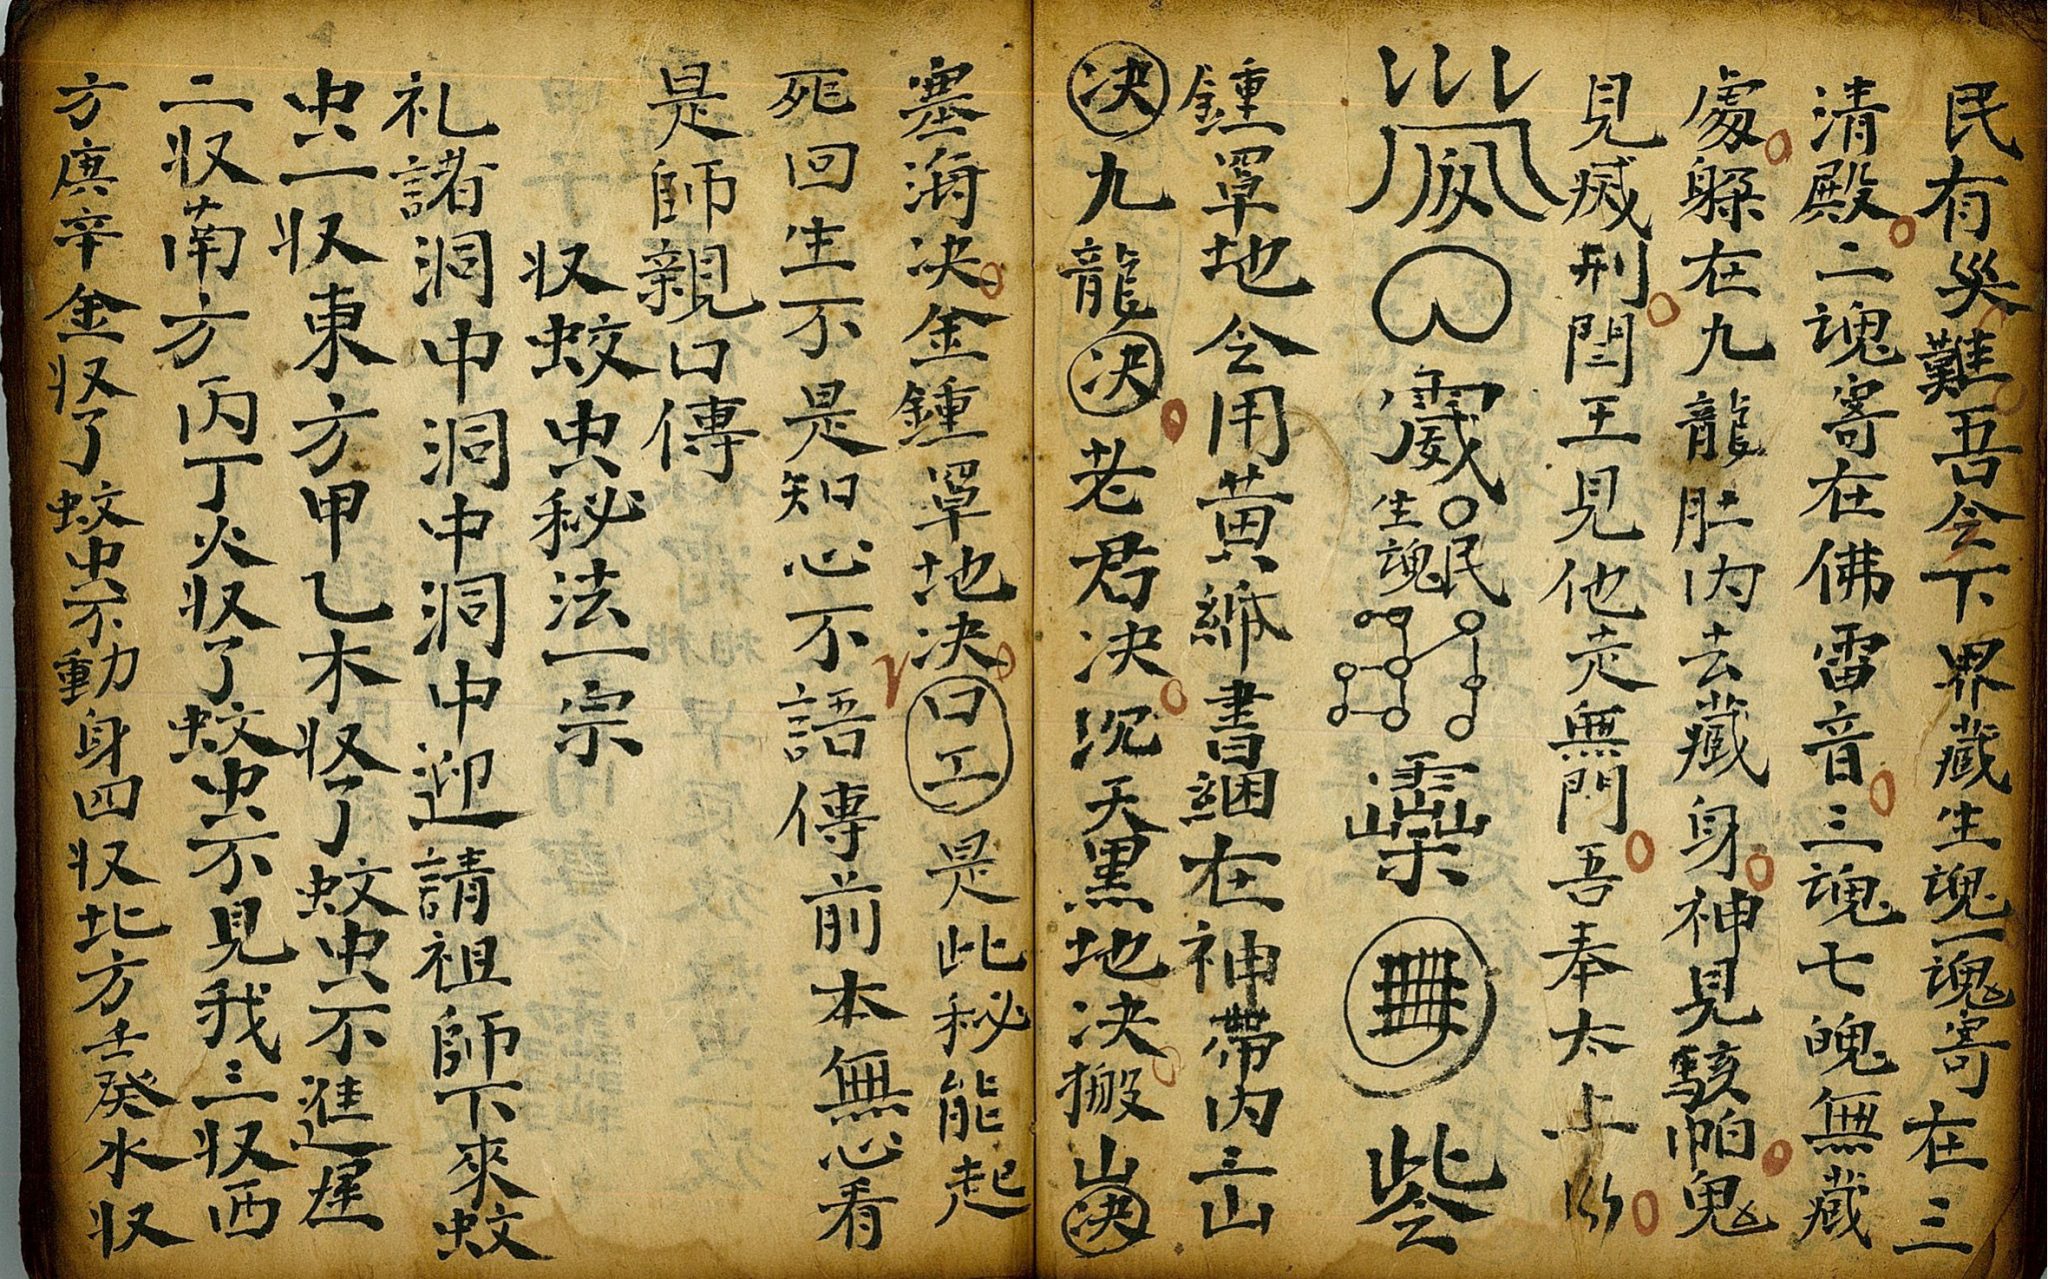 民有災難吾今下界藏生魂一魂寄在三
清殿二魂寄在佛雷音三魂七魄無藏
處躲在九龍肚内去藏身神見駭帕鬼
見滅刑閆王見他走無門吾奉太上
生魂民
鍾罩地令用黄紙書綑在神帶内三山
决九龍决老君决沉天黑地决搬山决
塞海决金鍾罩地决口工是此秘能起
死回生不是知心不語傳前本無心看
是師親口傳
収蚊虫秘法一宗
礼請洞中洞中洞中迎請祖師下來蚊
虫一収東方甲乙木収了蚊虫不進屋
二収南方丙丁火収了蚊虫不見我三収西
方庚辛金収了蚊虫不動身四収北方壬癸水収